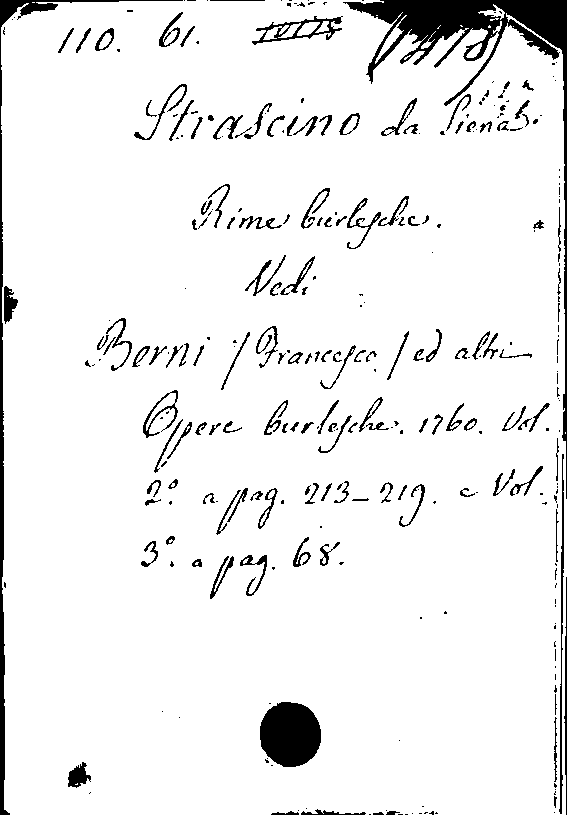 110. 61.
Strascino da Siena.
Rime burlesche.
Vedi
Berni / Francesco / ed altri
Opere burlesche. 1760. Vol.
2.º a pag. 213-219. e Vol.
3.º a pag. 68.